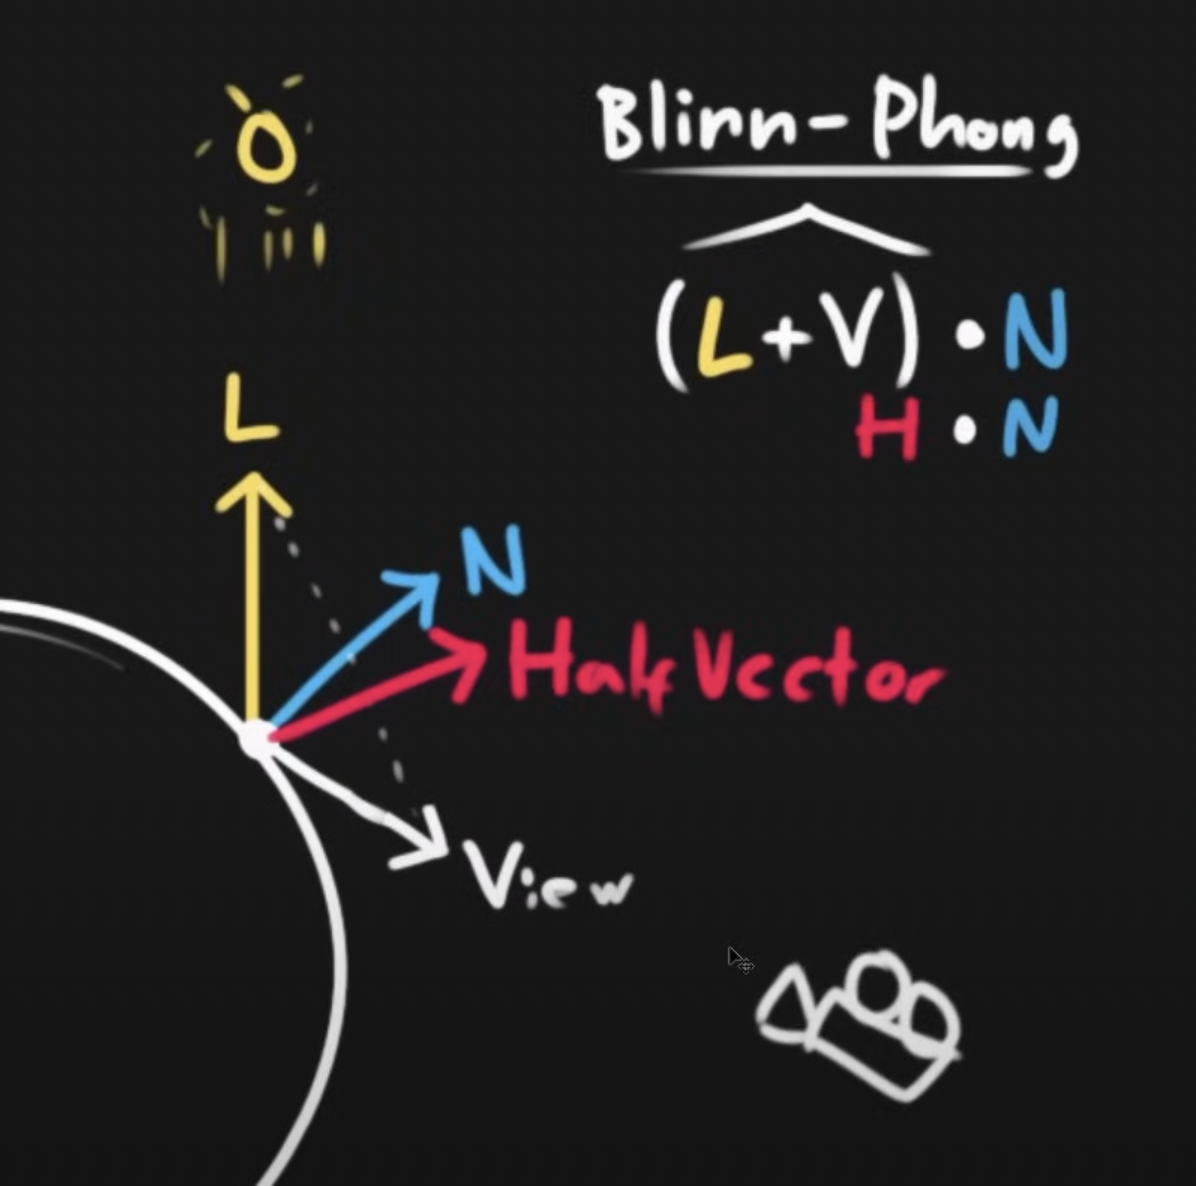 Blinn-Phong
(L+V) • N
H • N
L
N
Half Vector
View